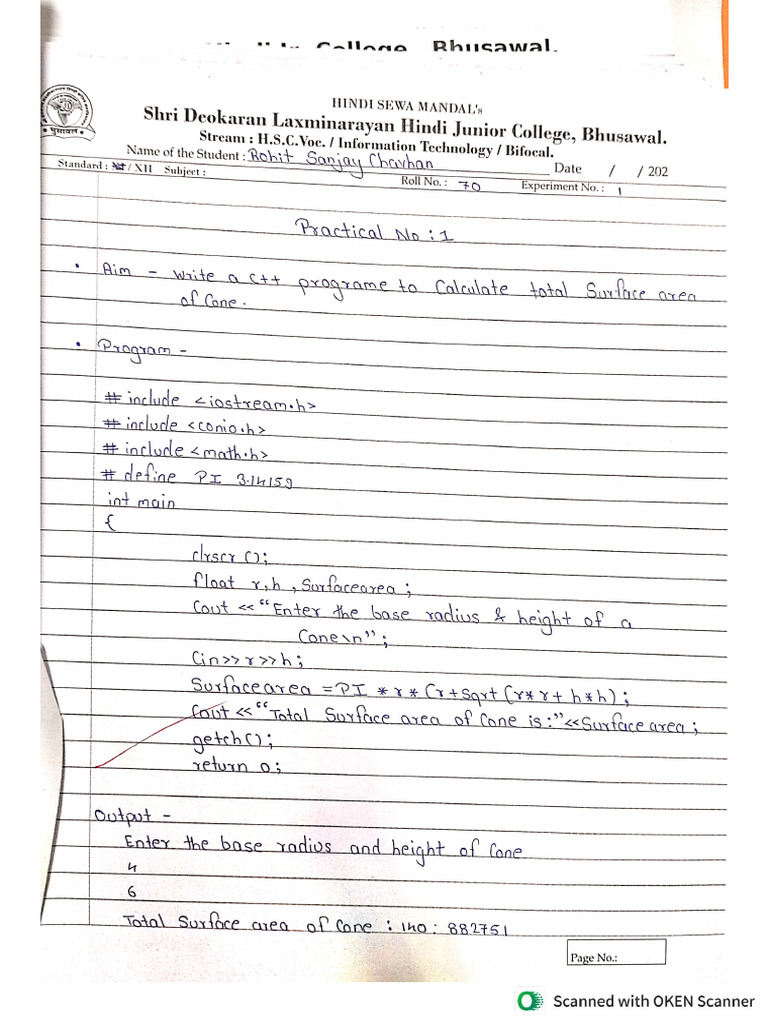 College, Bhusawal.
HINDI SEWA MANDAL's
Shri Deokaran Laxminarayan Hindi Junior College, Bhusawal.
Stream : H.S.C.Voc. / Information Technology / Bifocal.
Name of the Student : Rohit Sanjay Chavhan Date / / 202
Standard : XI / XII Subject : Roll No. : 70 Experiment No. : 1
Practical No : 1
• Aim - Write a C++ programe to Calculate total Surface area
of Cone.
• Program -
# include <iostream.h>
# include <conio.h>
# include <math.h>
# define PI 3.14159
int main
{
clrscr ();
float r,h , Surfacearea ;
Cout << "Enter the base radius & height of a
Cone\n" ;
Cin>>r>>h ;
Surfacearea = PI * r * (r + Sqrt (r*r + h*h) ;
Cout << "Total Surface area of Cone is:"<<Surface area ;
getch();
return 0 ;
Output -
Enter the base radius and height of Cone
4
6
Total Surface area of Cone : 140: 882751
Page No.:
Scanned with OKEN Scanner